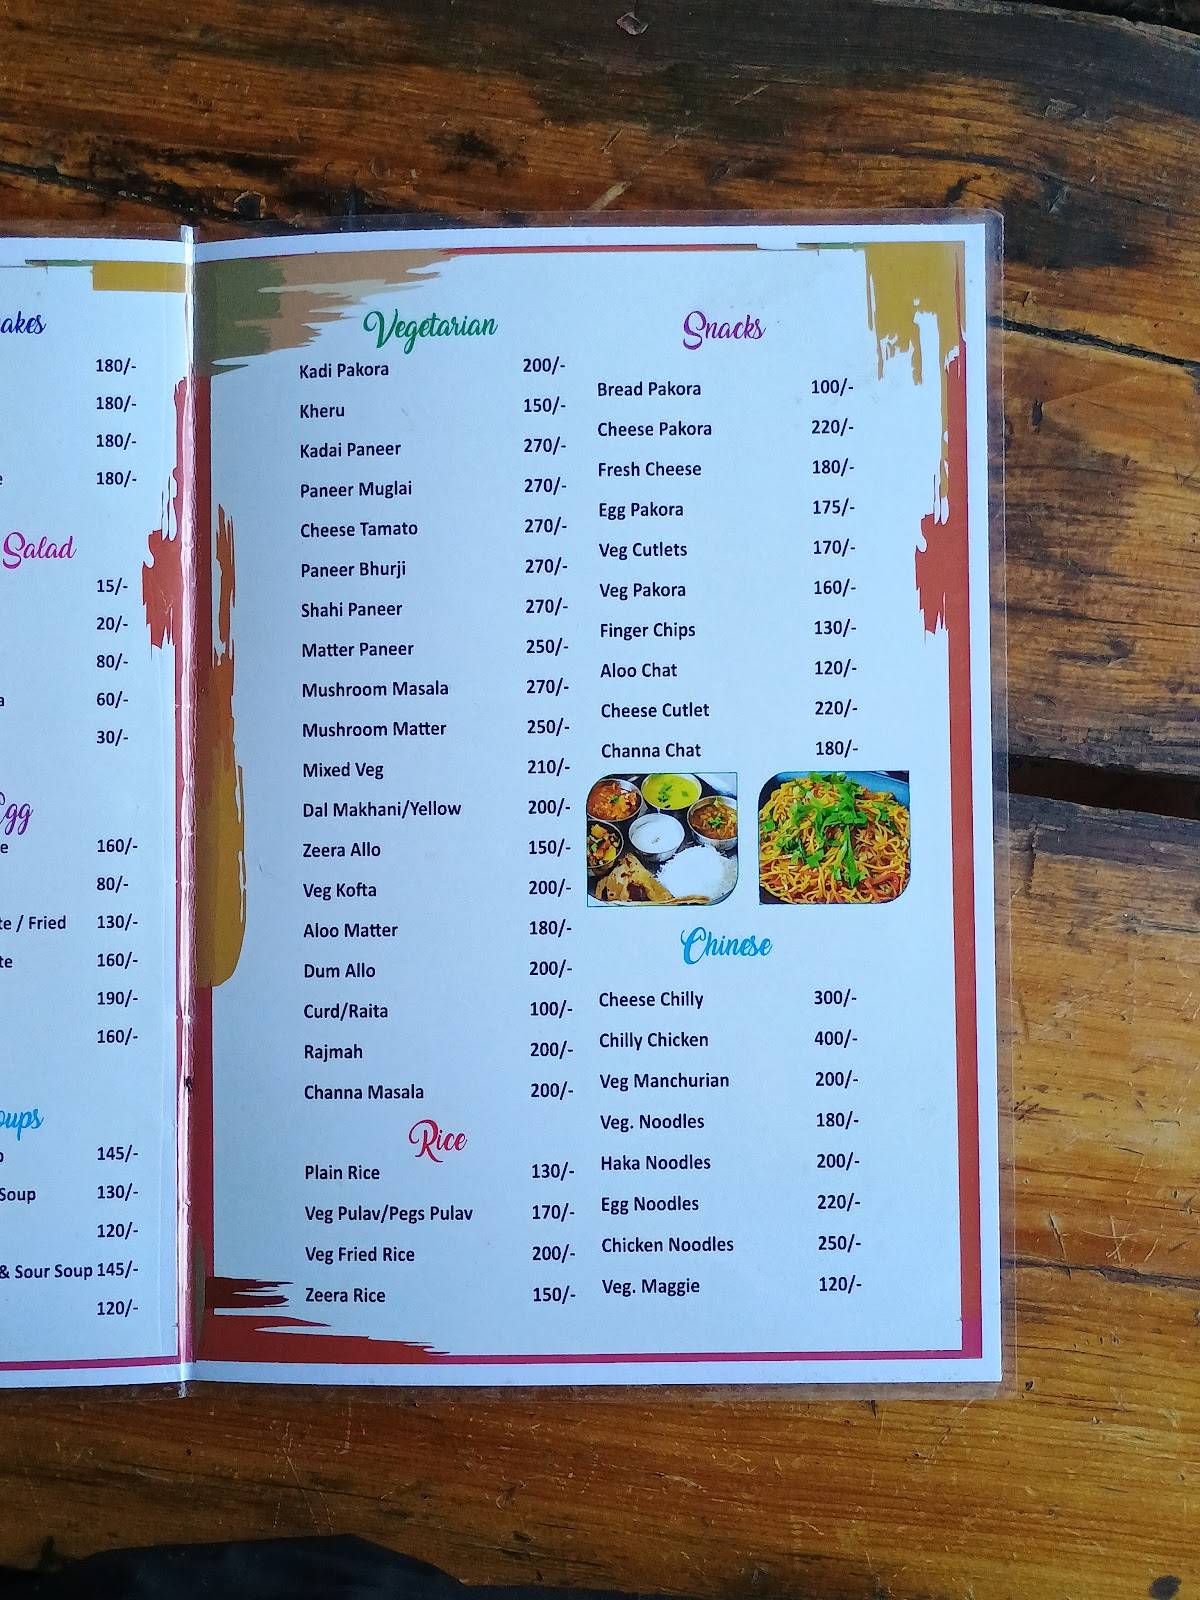 180/-
180/-
180/-
180/-
Salad
15/-
20/-
80/-
60/-
30/-
160/-
80/-
/ Fried 130/-
160/-
190/-
160/-
145/-
Soup 130/-
120/-
& Sour Soup 145/-
120/-
Vegetarian
Kadi Pakora 200/-
Kheru 150/-
Kadai Paneer 270/-
Paneer Muglai 270/-
Cheese Tamato 270/-
Paneer Bhurji 270/-
Shahi Paneer 270/-
Matter Paneer 250/-
Mushroom Masala 270/-
Mushroom Matter 250/-
Mixed Veg 210/-
Dal Makhani/Yellow 200/-
Zeera Allo 150/-
Veg Kofta 200/-
Aloo Matter 180/-
Dum Allo 200/-
Curd/Raita 100/-
Rajmah 200/-
Channa Masala 200/-
Rice
Plain Rice 130/-
Veg Pulav/Pegs Pulav 170/-
Veg Fried Rice 200/-
Zeera Rice 150/-
Snacks
Bread Pakora 100/-
Cheese Pakora 220/-
Fresh Cheese 180/-
Egg Pakora 175/-
Veg Cutlets 170/-
Veg Pakora 160/-
Finger Chips 130/-
Aloo Chat 120/-
Cheese Cutlet 220/-
Channa Chat 180/-
Chinese
Cheese Chilly 300/-
Chilly Chicken 400/-
Veg Manchurian 200/-
Veg. Noodles 180/-
Haka Noodles 200/-
Egg Noodles 220/-
Chicken Noodles 250/-
Veg. Maggie 120/-